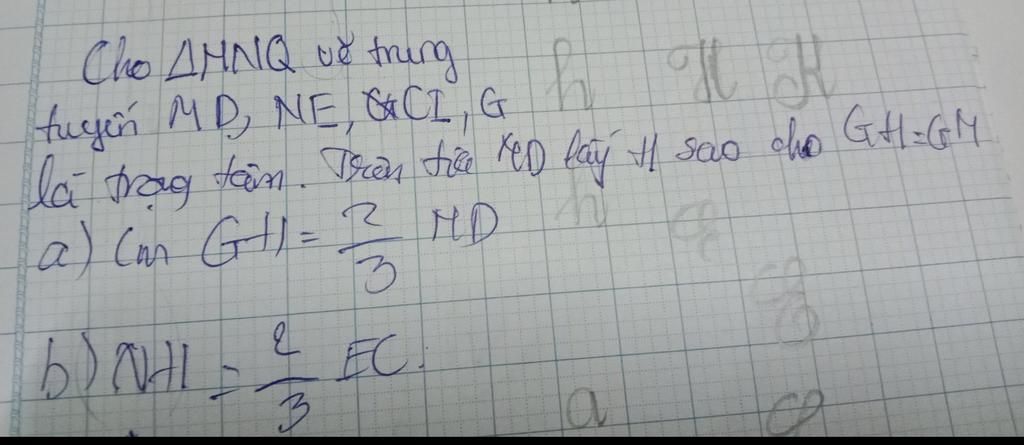 Cho ΔMNQ vẽ trung
tuyến MD, NE, CI, G
là trọng tâm. Trên tia MD lấy H sao cho GH=GM
a) Cm GH = 2/3 MD
b) NH = 2/3 EC.